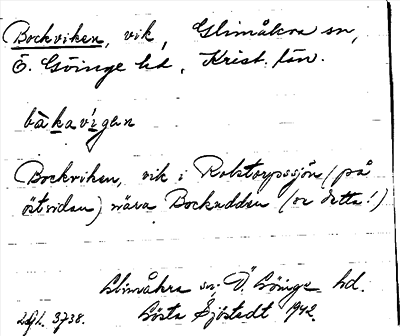 Bockviken, vik, Glimåkra sn,
Ö. Göinge hd, Krist. län.
bȧkavigen
Bockviken, vik i Rolstorpssjön (på
östsidan) nära Bockudden (se detta!)
Glimåkra sn. Ö. Göinge hd.
Gösta Sjöstedt 1942.
3738.